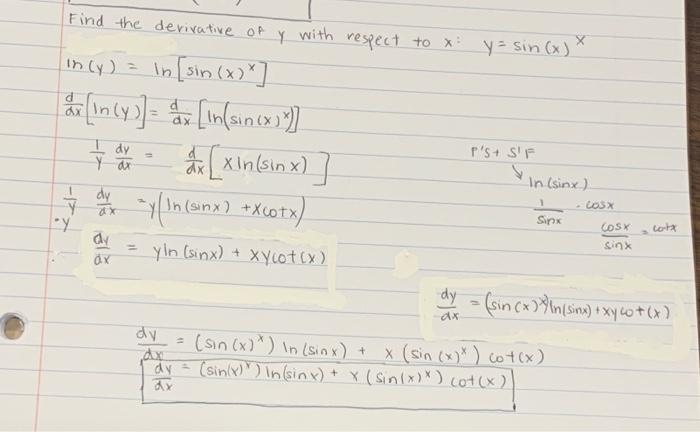 Find the derivative of y with respect to x: y = sin(x)^x
ln(y) = ln[sin(x)^x]
d/dx [ln(y)] = d/dx [ln(sin(x)^x)]
1/y dy/dx = d/dx [x ln(sin x)]
P'S + S'F
ln(sinx)
1/sinx · cosx
cosx/sinx = cotx
·y 1/y dy/dx = y(ln(sinx) + xcotx)
dy/dx = yln(sinx) + xycot(x)
dy/dx = (sin(x)^x)ln(sinx) + xycot(x)
dy/dx = (sin(x)^x) ln(sinx) + x(sin(x)^x) cot(x)
dy/dx = (sin(x)^x) ln(sinx) + x(sin(x)^x) cot(x)